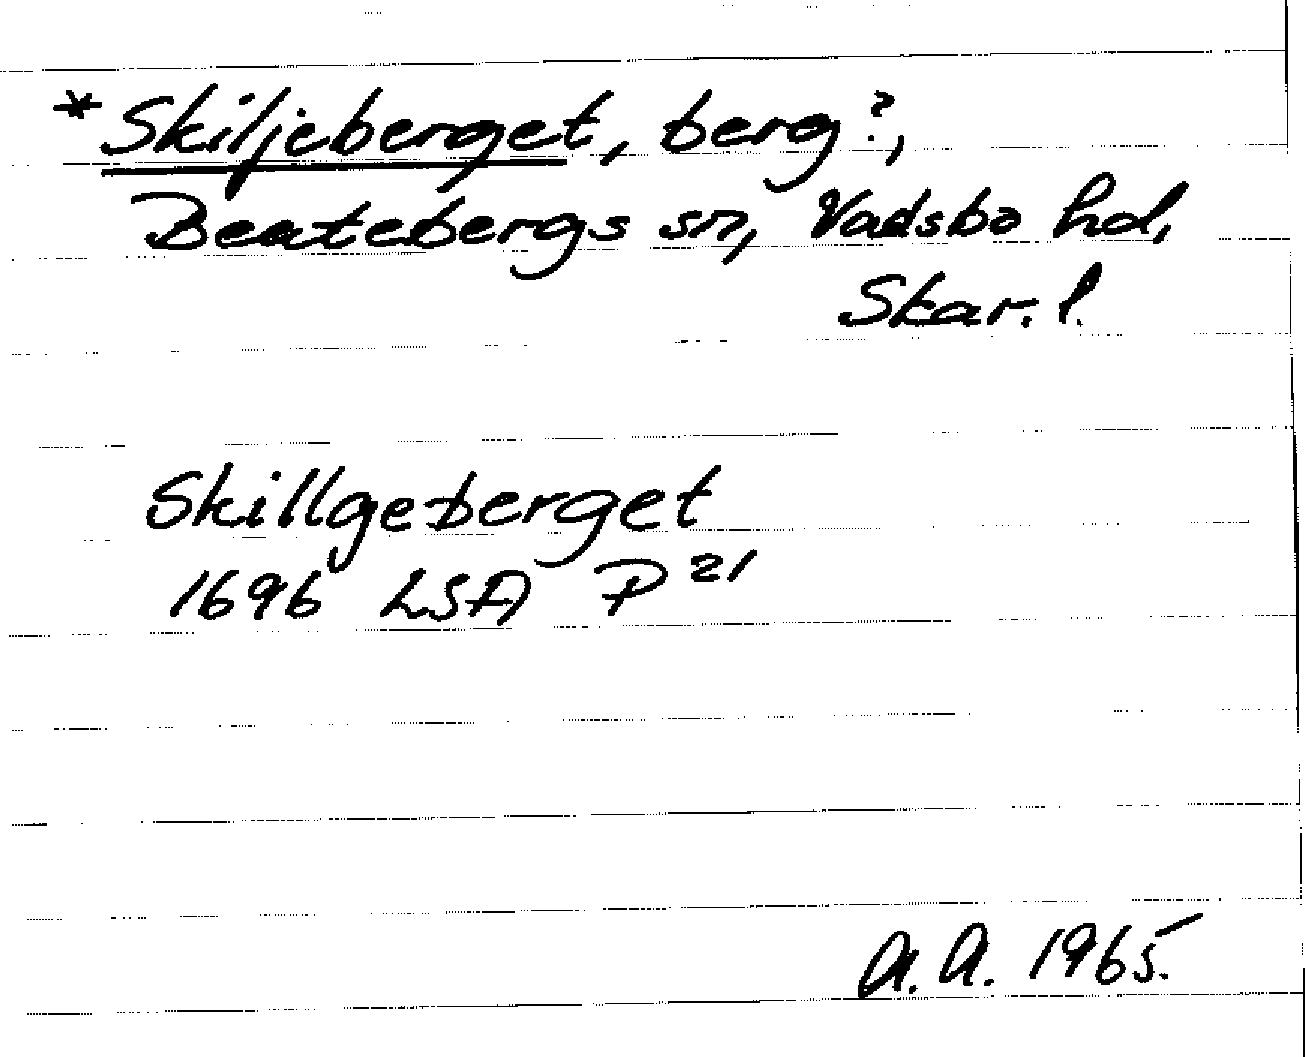 *Skiljeberget, berg?,
Beatebergs sn, Vadsbo hd,
Skar. l.
Skillgeberget
1696 LSA P 21
A.A. 1965.